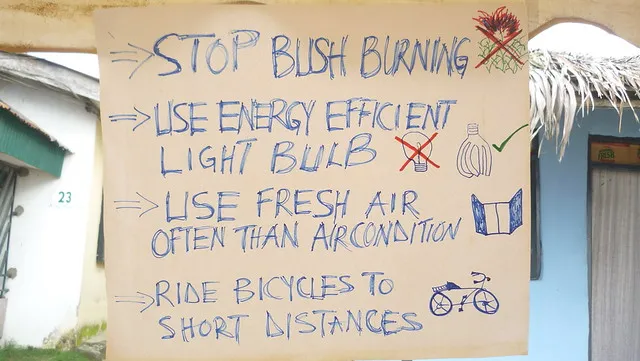 ⇒ STOP BUSH BURNING
⇒ USE ENERGY EFFICIENT
LIGHT BULB
⇒ USE FRESH AIR
OFTEN THAN AIRCONDITION
⇒ RIDE BICYCLES TO
SHORT DISTANCES
23